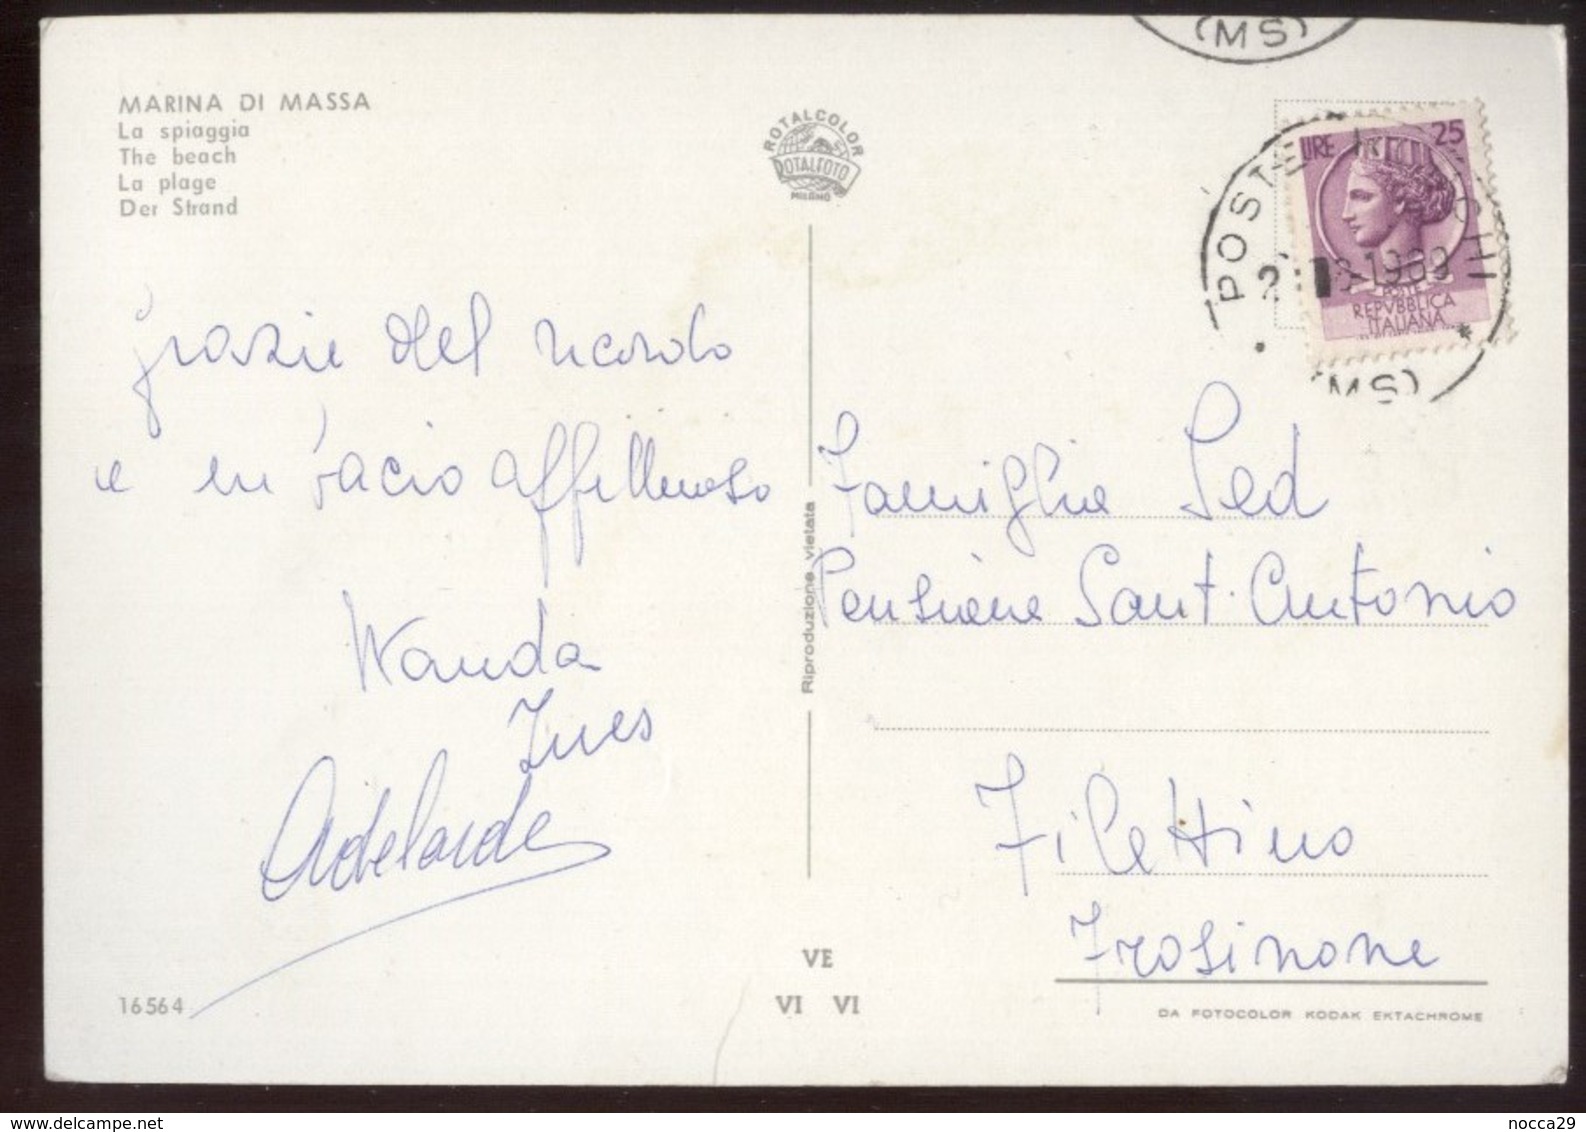 (MS)
MARINA DI MASSA
La spiaggia
The beach
La plage
Der Strand
ROTALCOLOR
ROTALFOTO
MILANO
LIRE 25
POSTE
1969
POSTE
REPVBBLICA
ITALIANA
(MS)
Grazie del ricordo
e un bacio affettuoso
Wanda
Ines
Adelaide
Riproduzione vietata
Famiglia
Pensione Sant. Antonio
Filettino
Frosinone
VE
VI VI
16564
DA FOTOCOLOR KODAK EKTACHROME
nocca29